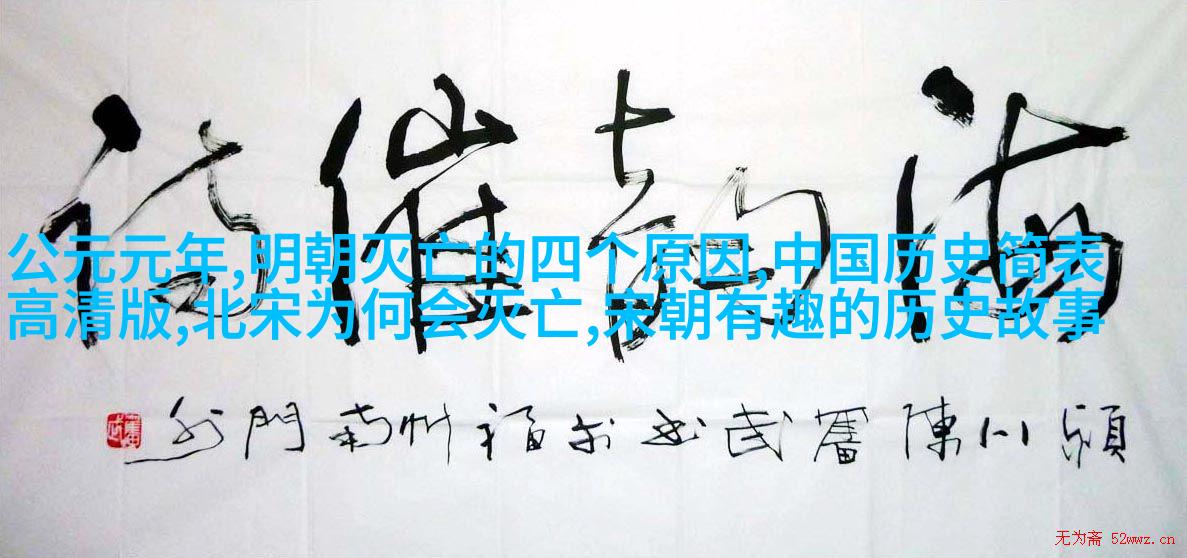 海催诗
公元元年,明朝灭亡的四个原因,中国历史简表
高清版,北宋为何会灭亡,宋朝有趣的历史故事
川陳武书福州南門外
无为斋 52wwz.cn